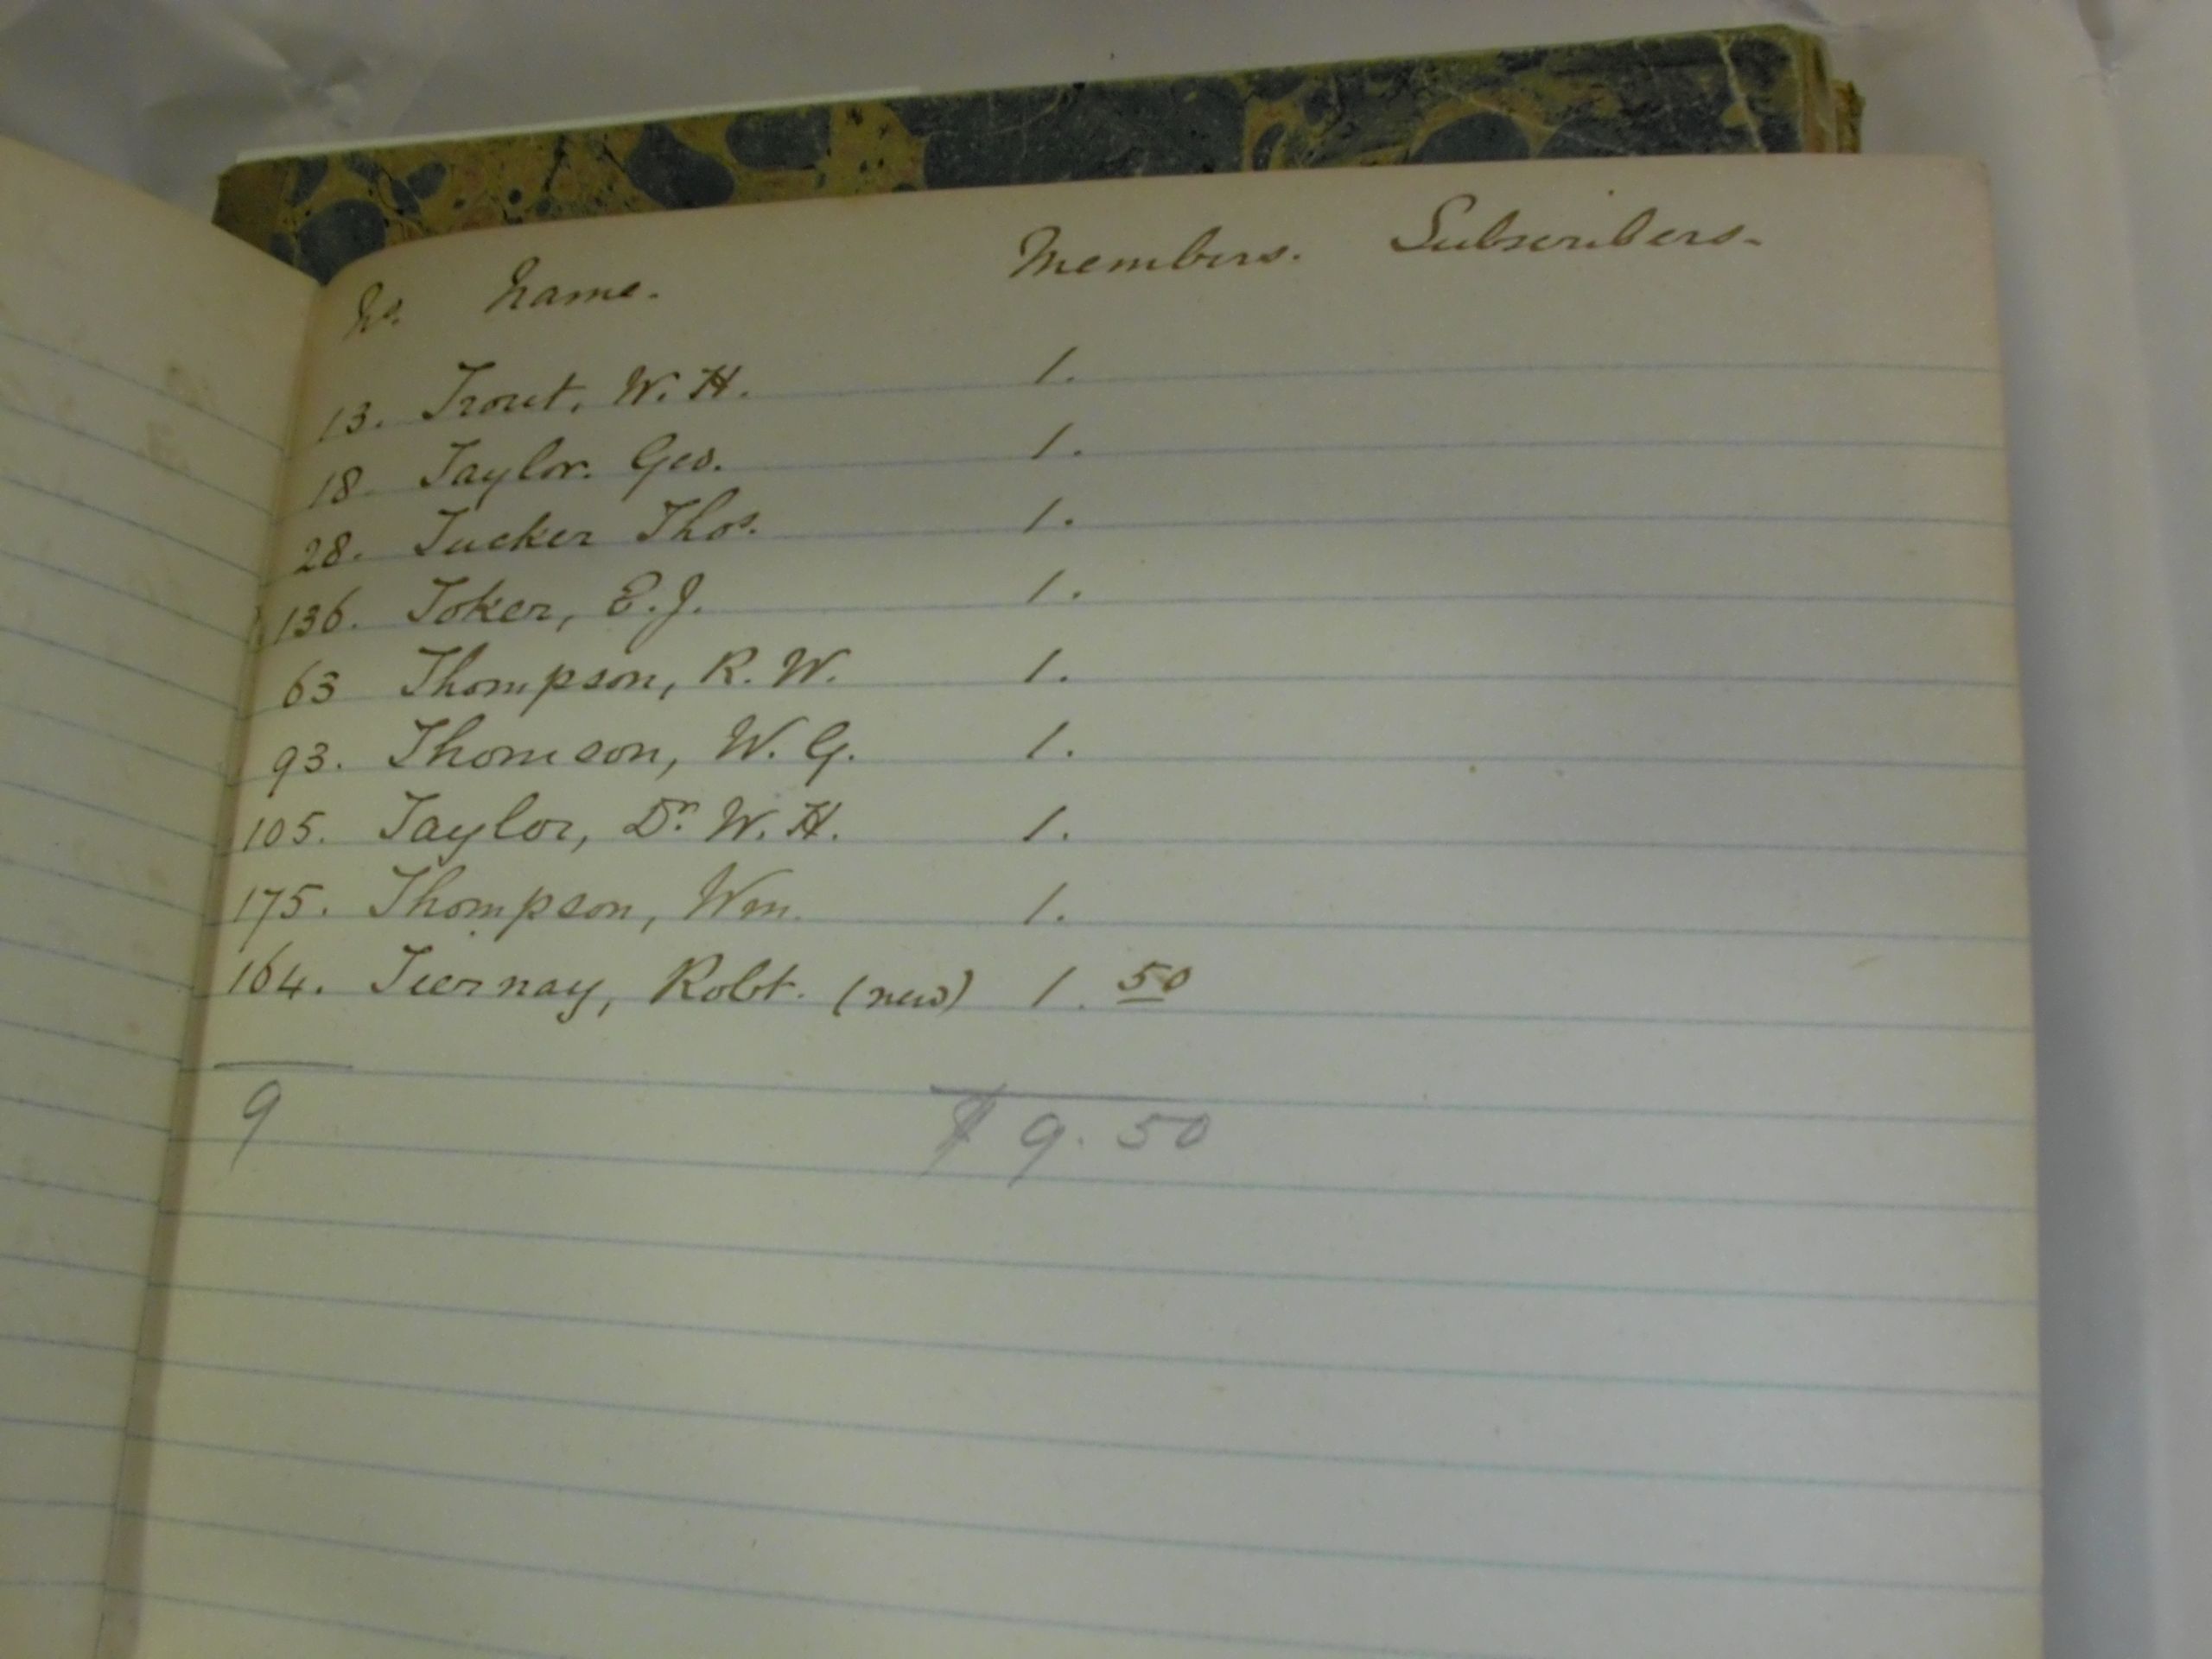 No. Name. Members. Subscribers.
13. Trout, W. H. 1.
18. Taylor. Geo. 1.
28. Tucker Thos. 1.
136. Toker, E. J. 1.
63 Thompson, R. W. 1.
93. Thomson, W. G. 1.
105. Taylor, Dr. W. H. 1.
175. Thompson, Wm. 1.
164. Tiernay, Robt. (new) 1. 50
9 $ 9. 50